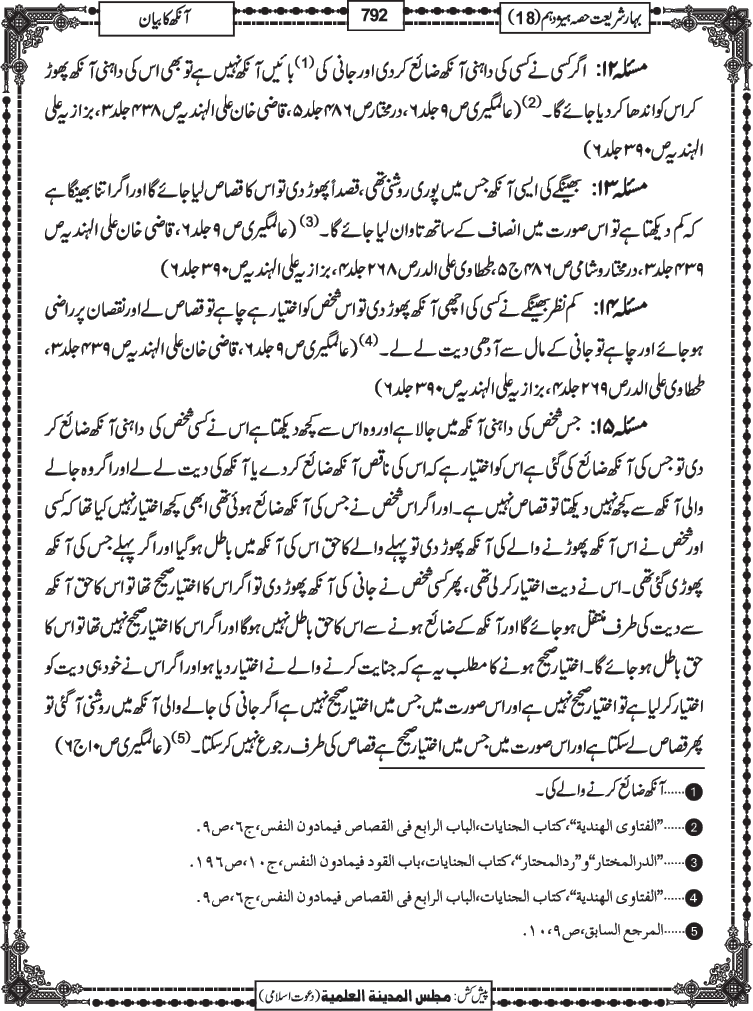 بہارِ شریعت حصہ ہیزدہم (18)
792
آنکھ کا بیان
مسئلہ ۱۲: اگر کسی نے کسی کی داہنی آنکھ ضائع کر دی اور جانی کی (1) بائیں آنکھ نہیں ہے تو بھی اس کی داہنی آنکھ پھوڑ
کر اس کو اندھا کر دیا جائے گا۔ (2) (عالمگیری ص ۹ جلد ۶، درمختار ص ۴۸۶ جلد ۵، قاضی خان علی الہندیہ ص ۴۳۸ جلد ۳، بزازیہ علی
الہندیہ ص ۳۹۰ جلد ۶)
مسئلہ ۱۳: بھینگے کی ایسی آنکھ جس میں پوری روشنی تھی، قصداً پھوڑ دی تو اس کا قصاص لیا جائے گا اور اگر اتنا بھینگا ہے
کہ کم دیکھتا ہے تو اس صورت میں انصاف کے ساتھ تاوان لیا جائے گا۔ (3) (عالمگیری ص ۹ جلد ۶، قاضی خان علی الہندیہ ص
۴۳۹ جلد ۳، درمختار و شامی ص ۴۸۶ ج ۵، طحطاوی علی الدر ص ۲۶۸ جلد ۴، بزازیہ علی الہندیہ ص ۳۹۰ جلد ۶)
مسئلہ ۱۴: کم نظر بھینگے نے کسی کی اچھی آنکھ پھوڑ دی تو اس شخص کو اختیار ہے چاہے تو قصاص لے اور نقصان پر راضی
ہو جائے اور چاہے تو جانی کے مال سے آدھی دیت لے لے۔ (4) (عالمگیری ص ۹ جلد ۶، قاضی خان علی الہندیہ ص ۴۳۹ جلد ۳،
طحطاوی علی الدر ص ۲۶۹ جلد ۴، بزازیہ علی الہندیہ ص ۳۹۰ جلد ۶)
مسئلہ ۱۵: جس شخص کی داہنی آنکھ میں جالا ہے اور وہ اس سے کچھ دیکھتا ہے اس نے کسی شخص کی داہنی آنکھ ضائع کر
دی تو جس کی آنکھ ضائع کی گئی ہے اس کو اختیار ہے کہ اس کی ناقص آنکھ ضائع کر دے یا آنکھ کی دیت لے لے اور اگر وہ جالے
والی آنکھ سے کچھ نہیں دیکھتا تو قصاص نہیں ہے۔ اور اگر اس شخص نے جس کی آنکھ ضائع ہوئی تھی ابھی کچھ اختیار نہیں کیا تھا کہ کسی
اور شخص نے اس آنکھ پھوڑنے والے کی آنکھ پھوڑ دی تو پہلے والے کا حق اس کی آنکھ میں باطل ہو گیا اور اگر پہلے جس کی آنکھ
پھوڑی گئی تھی۔ اس نے دیت اختیار کر لی تھی، پھر کسی شخص نے جانی کی آنکھ پھوڑ دی تو اگر اس کا اختیار صحیح تھا تو اس کا حق آنکھ
سے دیت کی طرف منتقل ہو جائے گا اور آنکھ کے ضائع ہونے سے اس کا حق باطل نہیں ہوگا اور اگر اس کا اختیار صحیح نہیں تھا تو اس کا
حق باطل ہو جائے گا۔ اختیار صحیح ہونے کا مطلب یہ ہے کہ جنایت کرنے والے نے اختیار دیا ہو اور اگر اس نے خود ہی دیت کو
اختیار کر لیا ہے تو اختیار صحیح نہیں ہے اور اس صورت میں جس میں اختیار صحیح نہیں ہے اگر جانی کی جالے والی آنکھ میں روشنی آ گئی تو
پھر قصاص لے سکتا ہے اور اس صورت میں جس میں اختیار صحیح ہے قصاص کی طرف رجوع نہیں کر سکتا۔ (5) (عالمگیری ص ۱۰ ج ۶)
1 ......آنکھ ضائع کرنے والے کی۔
2 ......"الفتاوی الھندیة"، کتاب الجنایات، الباب الرابع فی القصاص فیمادون النفس، ج٦، ص٩.
3 ......"الدرالمختار" و "ردالمحتار"، کتاب الجنایات، باب القود فیمادون النفس، ج١٠، ص١٩٦.
4 ......"الفتاوی الھندیة"، کتاب الجنایات، الباب الرابع فی القصاص فیمادون النفس، ج٦، ص٩.
5 ......المرجع السابق، ص٩، ١٠.
پیش کش: مجلس المدینة العلمیة (دعوت اسلامی)